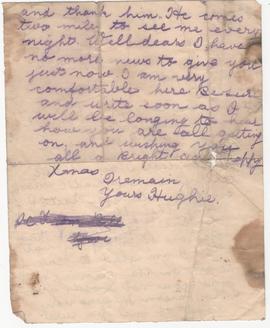 and thank him. He comes
two miles to see me every
night. Well dears I have
no more news to give you
just now I am very
comfortable here be sure
and write soon as I
will be longing to hear
how you are all getting
on, and wishing you
all a bright and Happy
Xmas
I remain
Yours Hughie.